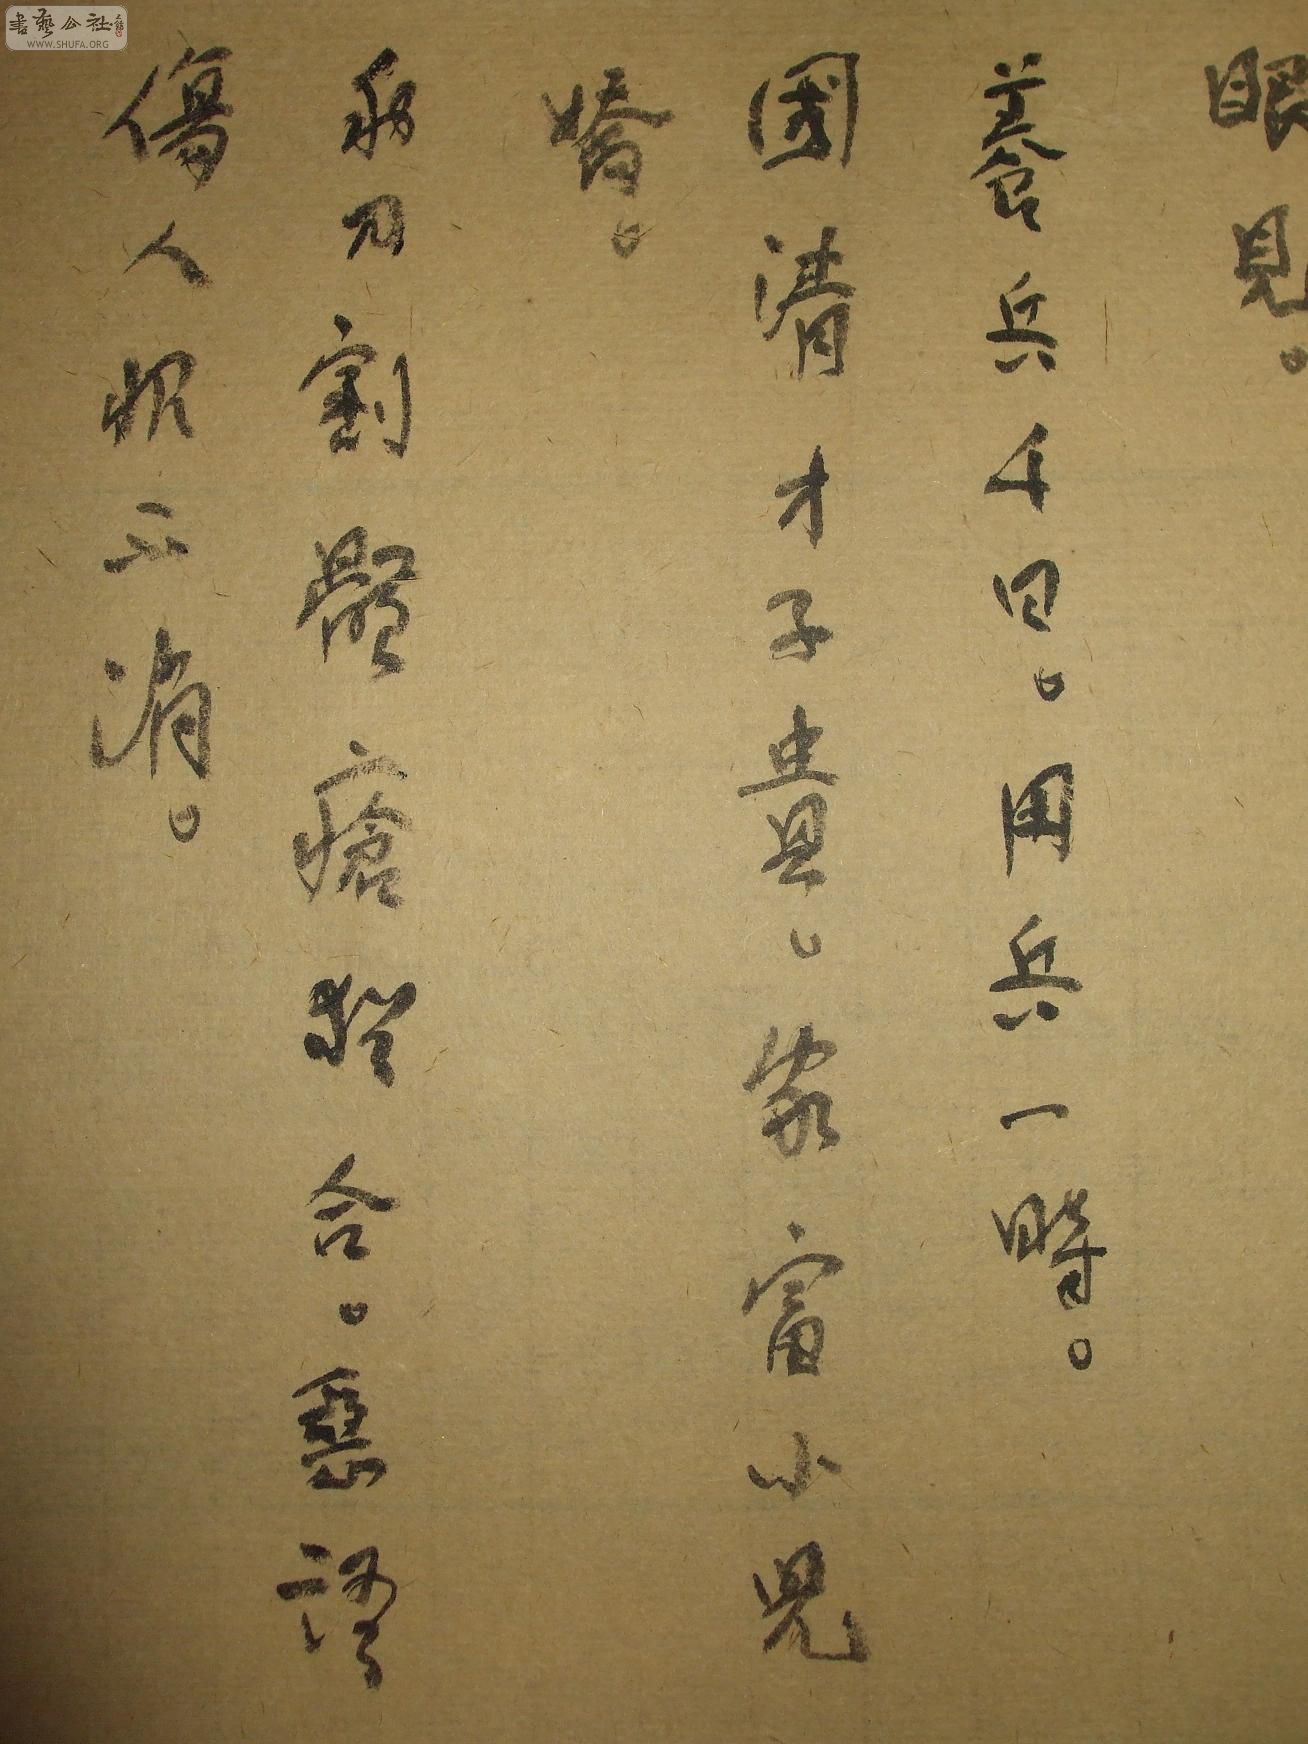 書藝公社
WWW.SHUFA.ORG
眼見。
養兵千日。用兵一時。
國清才子貴。家富小兒
嬌。
利刀割體瘡猶合。惡語
傷人恨不消。